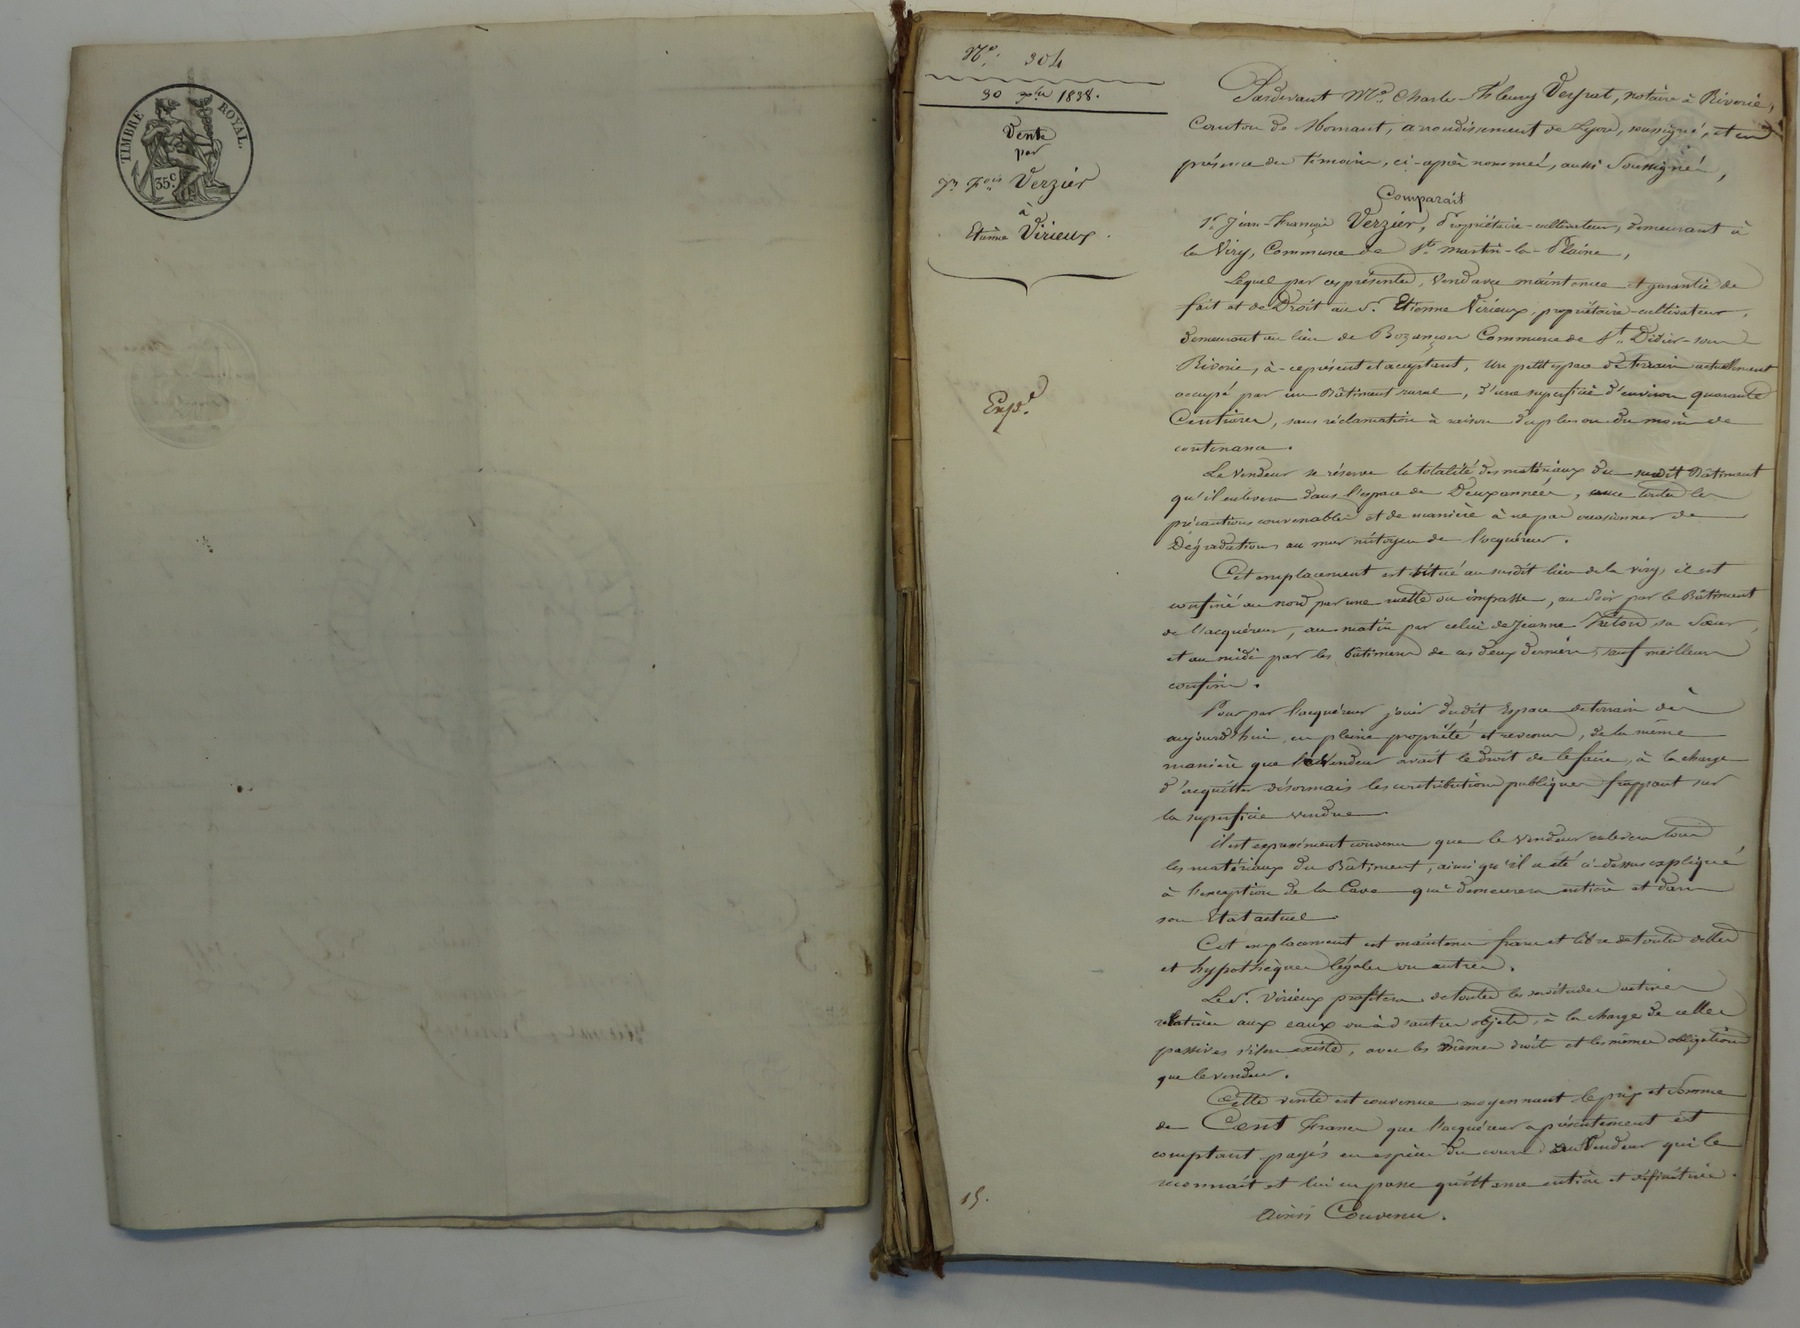 TIMBRE ROYAL.
35 c.
N.° 304
30 9bre 1838.
Vente
par
Jn Fois Verzier
à
Etienne Virieux.
Exp.é
15.
Pardevant M.e Charle-Fleury Veyrat, notaire à Riverie,
Canton de Mornant, arrondissement de Lyon, soussigné, et en
présence des témoins, ci-après nommés, aussi soussignés,
Comparait
Sr Jean-François Verzier, propriétaire-cultivateur, demeurant à
la Viry, Commune de St martin-la-Plaine,
Lequel par ces présentes, vend avec maintenue et garantie de
fait et de Droit au Sr Etienne Virieux, propriétaire-cultivateur,
demeurant au lieu de Bozançon Commune de St Didier-sous-
Riverie, à-ce présent et acceptant, un petit espace de terrain actuellement
occupé par un Bâtiment rural, d'une superficie d'environ quarante
Centiares, sans réclamation à raison du plus ou du moins de
contenance.
Le Vendeur se réserve la totalité des matériaux du susdit Bâtiment
qu'il enlevera dans l'espace de Deux années, avec toutes les
précautions convenables et de manière à ne pas occasionner de
Dégradations au mur mitoyen de l'acquéreur.
Cet emplacement est situé au susdit lieu de la viry, il est
confiné au nord par une ruelle ou impasse, au Soir par le Bâtiment
de l'acquéreur, au matin par celui de Jeanne sa Sœur,
et au midi par les bâtiments de ces deux derniers, sauf meilleurs
confins.
Pour par l'acquéreur jouir dudit Espace de terrain dès
aujourd'hui en pleine propriété et revenus, de la même
manière que le Vendeur avait le droit de le faire, à la charge
d'acquitter désormais les contributions publiques frappant sur
la superficie vendue.
il est expressément convenu que le vendeur enlevera tous
les matériaux du Bâtiment, ainsi qu'il a été ci-dessus expliqué
à l'exception de la Cave qui demeurera entière et dans
son Etat actuel.
Cet emplacement est maintenu franc et libre de toutes dettes
et hypothèques légales ou autres.
Le Sr Virieux profitera de toutes les servitudes actives
relatives aux eaux ou à d'autres objets, à la charge de celles
passives s'il en existe, avec les mêmes droits et les mêmes obligations
que le vendeur.
Cette vente est convenue moyennant le prix et Somme
de Cent Francs que l'acquéreur a présentement et
comptant payés en espèces du cours au Vendeur qui le
reconnait et lui en passe quittance entière et définitive.
Ainsi Convenu.